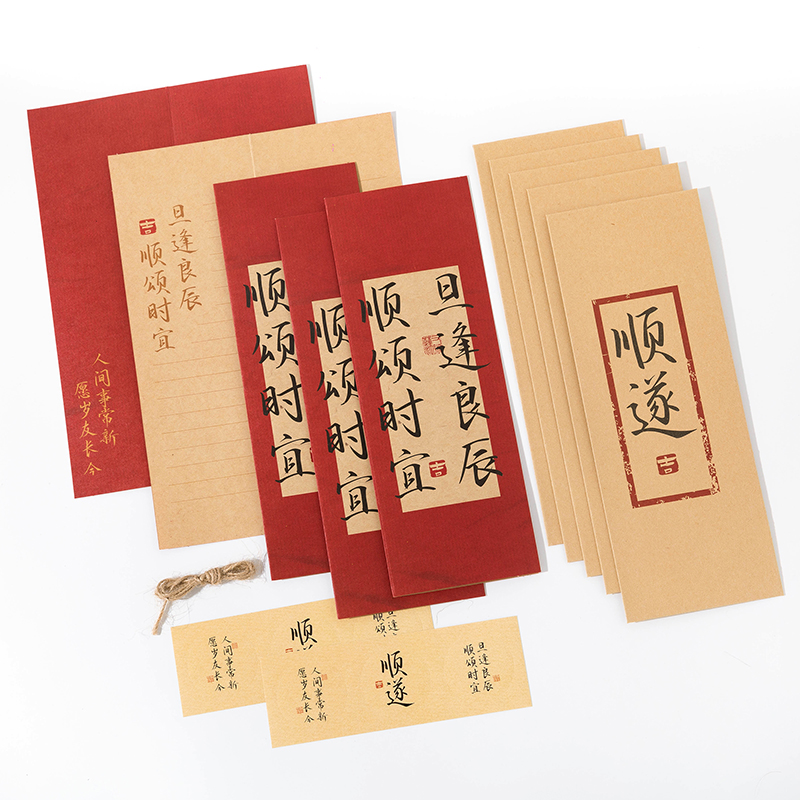 人间事常新
愿岁友长今
旦逢良辰
顺颂时宜
吉
顺颂时宜
顺颂时宜
旦逢良辰
吉
顺颂时宜
顺遂
吉
人间事常新
愿岁友长今
顺
旦逢
顺颂
人间事常新
愿岁友长今
顺遂
旦逢良辰
顺颂时宜